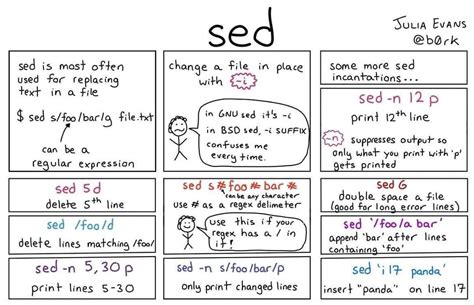 sed
JULIA EVANS
@b0rk
sed is most often
used for replacing
text in a file
$ sed s/foo/bar/g file.txt
can be a
regular expression
change a file in place
with -i
in GNU sed it's -i
in BSD sed, -i SUFFIX
confuses me
every time.
some more sed
incantations...
sed -n 12 p
print 12th line
-n suppresses output so
only what you print with 'p'
gets printed
sed 5d
delete 5th line
sed /foo/d
delete lines matching /foo/
sed -n 5,30 p
print lines 5-30
sed s#foo#bar#
can be any character
use # as a regex delimeter
use this if your
regex has a / in
it!
sed -n s/foo/bar/p
only print changed lines
sed G
double space a file
(good for long error lines)
sed '/foo/a bar'
append 'bar' after lines
containing 'foo'
sed 'i 17 panda'
insert "panda" on line 17